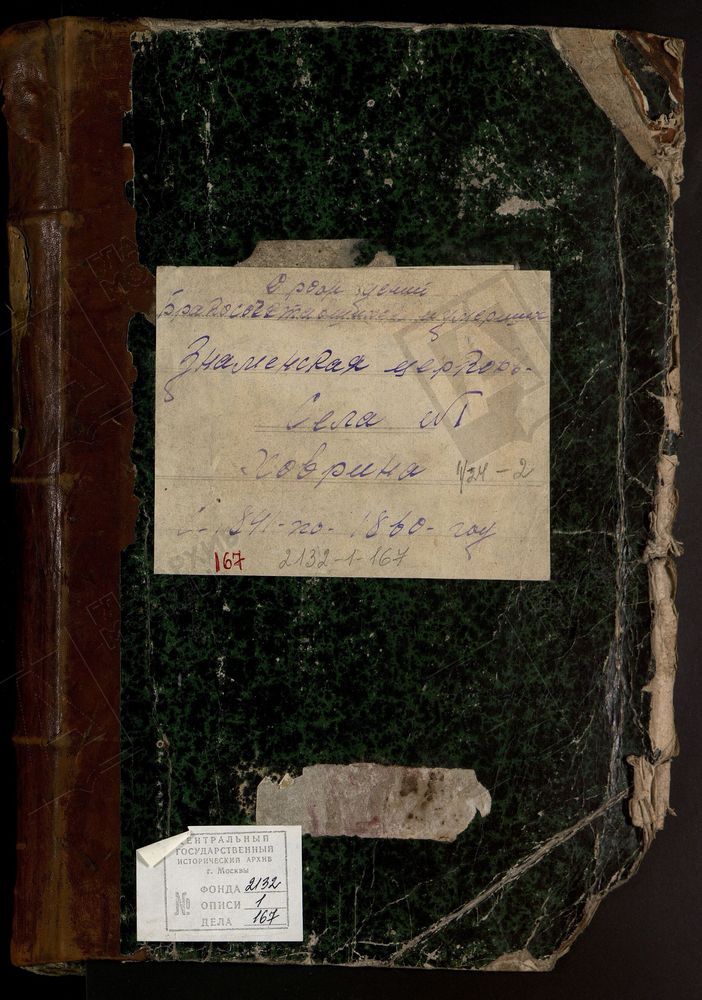 О рожденій
бракосочетающихся и умерших
Знаменская церковь
Села
Ховрина 1/24-2
С-1841-по-1860-год
167 2132-1-167
ЦЕНТРАЛЬНЫЙ
ГОСУДАРСТВЕННЫЙ
ИСТОРИЧЕСКИЙ АРХИВ
г. Москвы
№
ФОНДА 2132
ОПИСИ 1
ДЕЛА 167